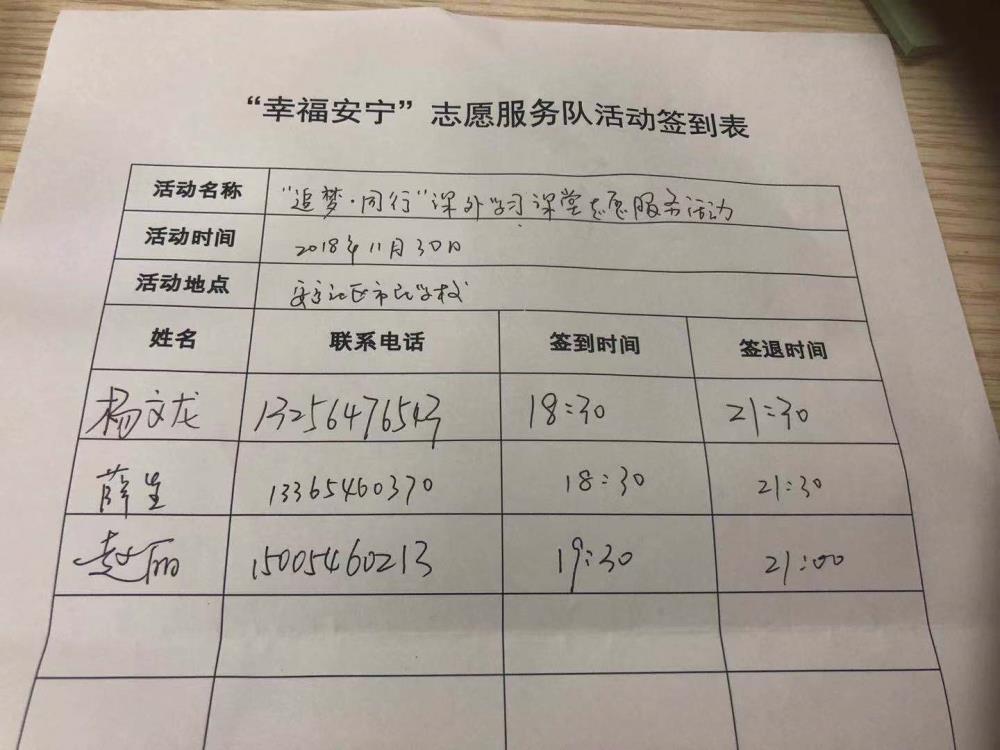 “幸福安宁”志愿服务队活动签到表
活动名称 “追梦·同行”课外学习课堂志愿服务活动
活动时间 2018年11月30日
活动地点 安宁社区市民学校
姓名 联系电话 签到时间 签退时间
杨文龙 13256476543 18:30 21:30
薛生 13365460370 18:30 21:30
赵丽 15005460213 19:30 21:00